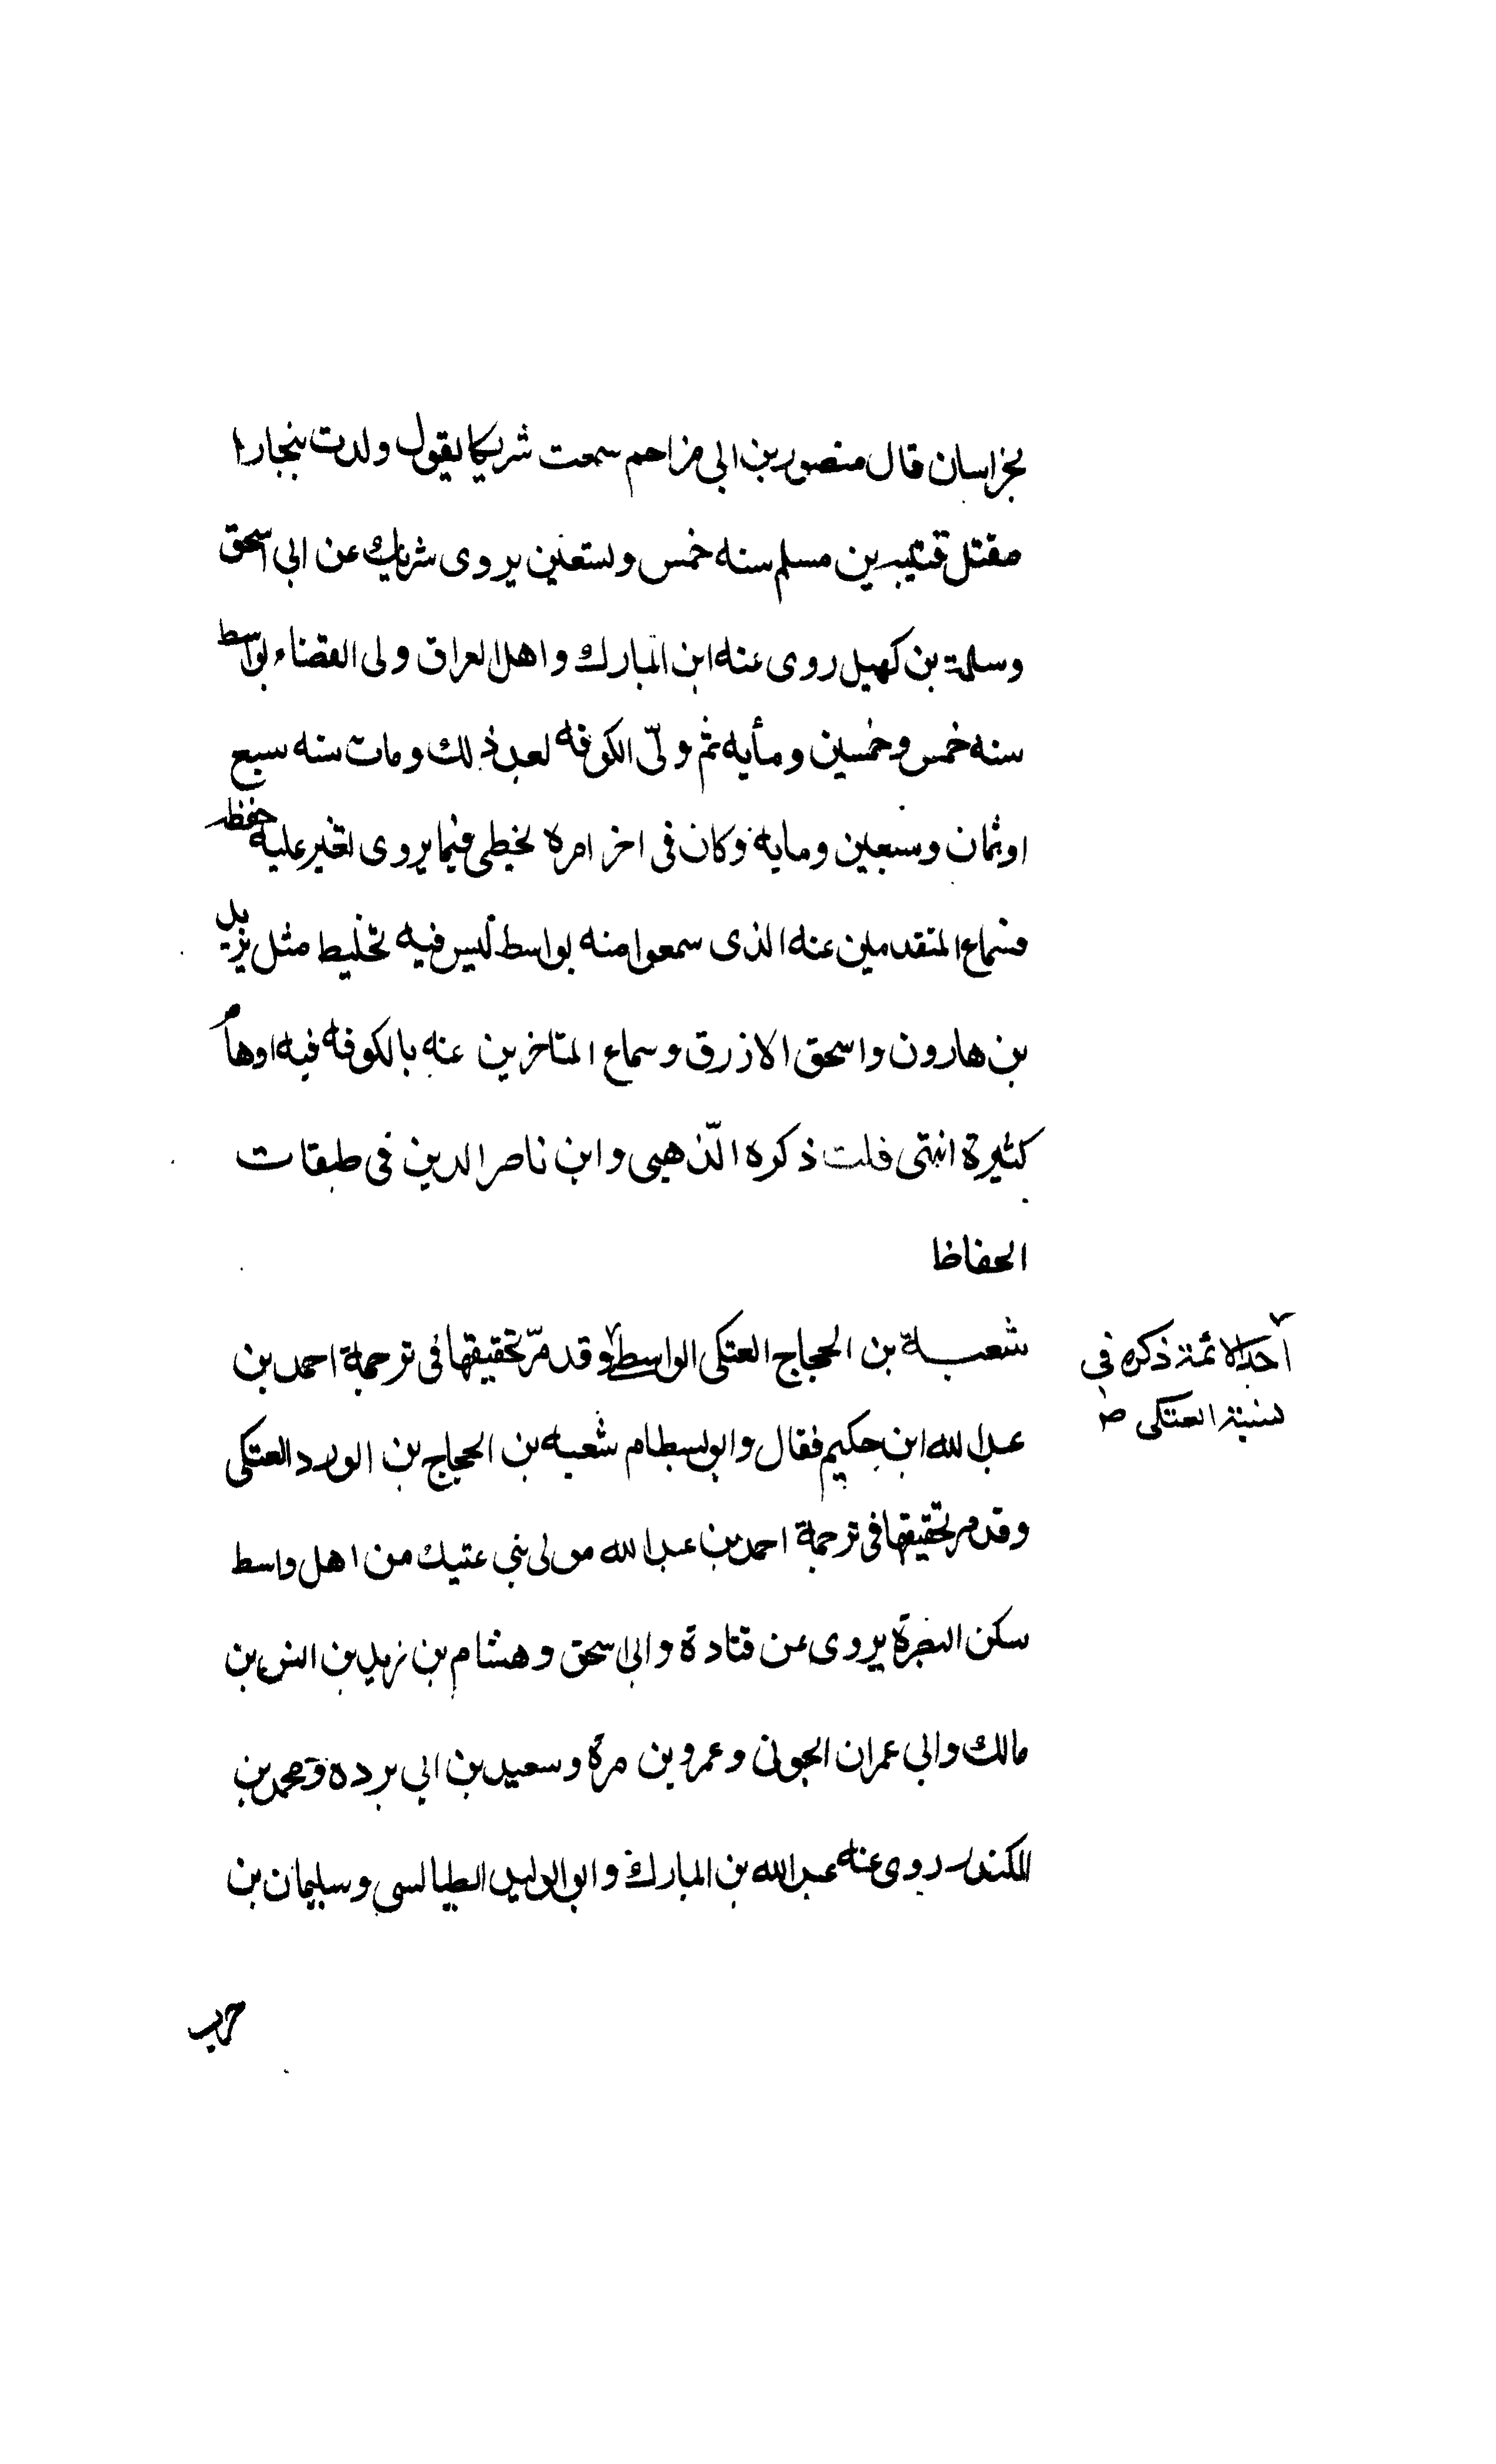 بخراسان قال منصور بن ابي مزاحم سمعت شريكا يقول ولدت ببخارا
مقتل قتيبه بن مسلم سنه خمس وتسعين يروى شريك عن ابي اسحق
وسلمة بن كهيل روى عنه ابن المبارك واهل العراق ولى القضاء بواسط
سنه خمس وخمسين ومأيه ثم ولّى الكوفه بعد ذلك ومات سنه سبع
او ثمان وسبعين ومايه وكان فى اخر امره يخطى فيما يروى تغير عليه حفظه
فسماع المتقدمين عنه الذى سمعوا منه بواسط ليس فيه تخليط مثل يزيد
بن هارون واسحق الازرق وسماع المتاخرين عنه بالكوفه فيه اوهام
كثيرة انتهى قلت ذكره الذهبى وابن ناصر الدين فى طبقات
الحفاظ
شعبة بن الحجاج العتكى الواسطى وقد مرّ تحقيقها فى ترجمة احمد بن
عبد الله ابن حكيم فقال وابو بسطام شعبه بن الحجاج بن الورد العتكى
وقد مر تحقيقها فى ترجمة احمد بن عبد الله مولى بني عتيك من اهل واسط
سكن البصرة يروى عن قتادة وابى اسحق وهشام بن زيد بن انس بن
مالك وابي عمران الجونى وعمرو بن مرة وسعيد بن ابي برده ومحمد بن
المكندر روى عنه عبد الله بن المبارك وابو الوليد الطيالسى وسليمان بن
احد الائمة ذكره في
نسبة العتكى صح
حرب